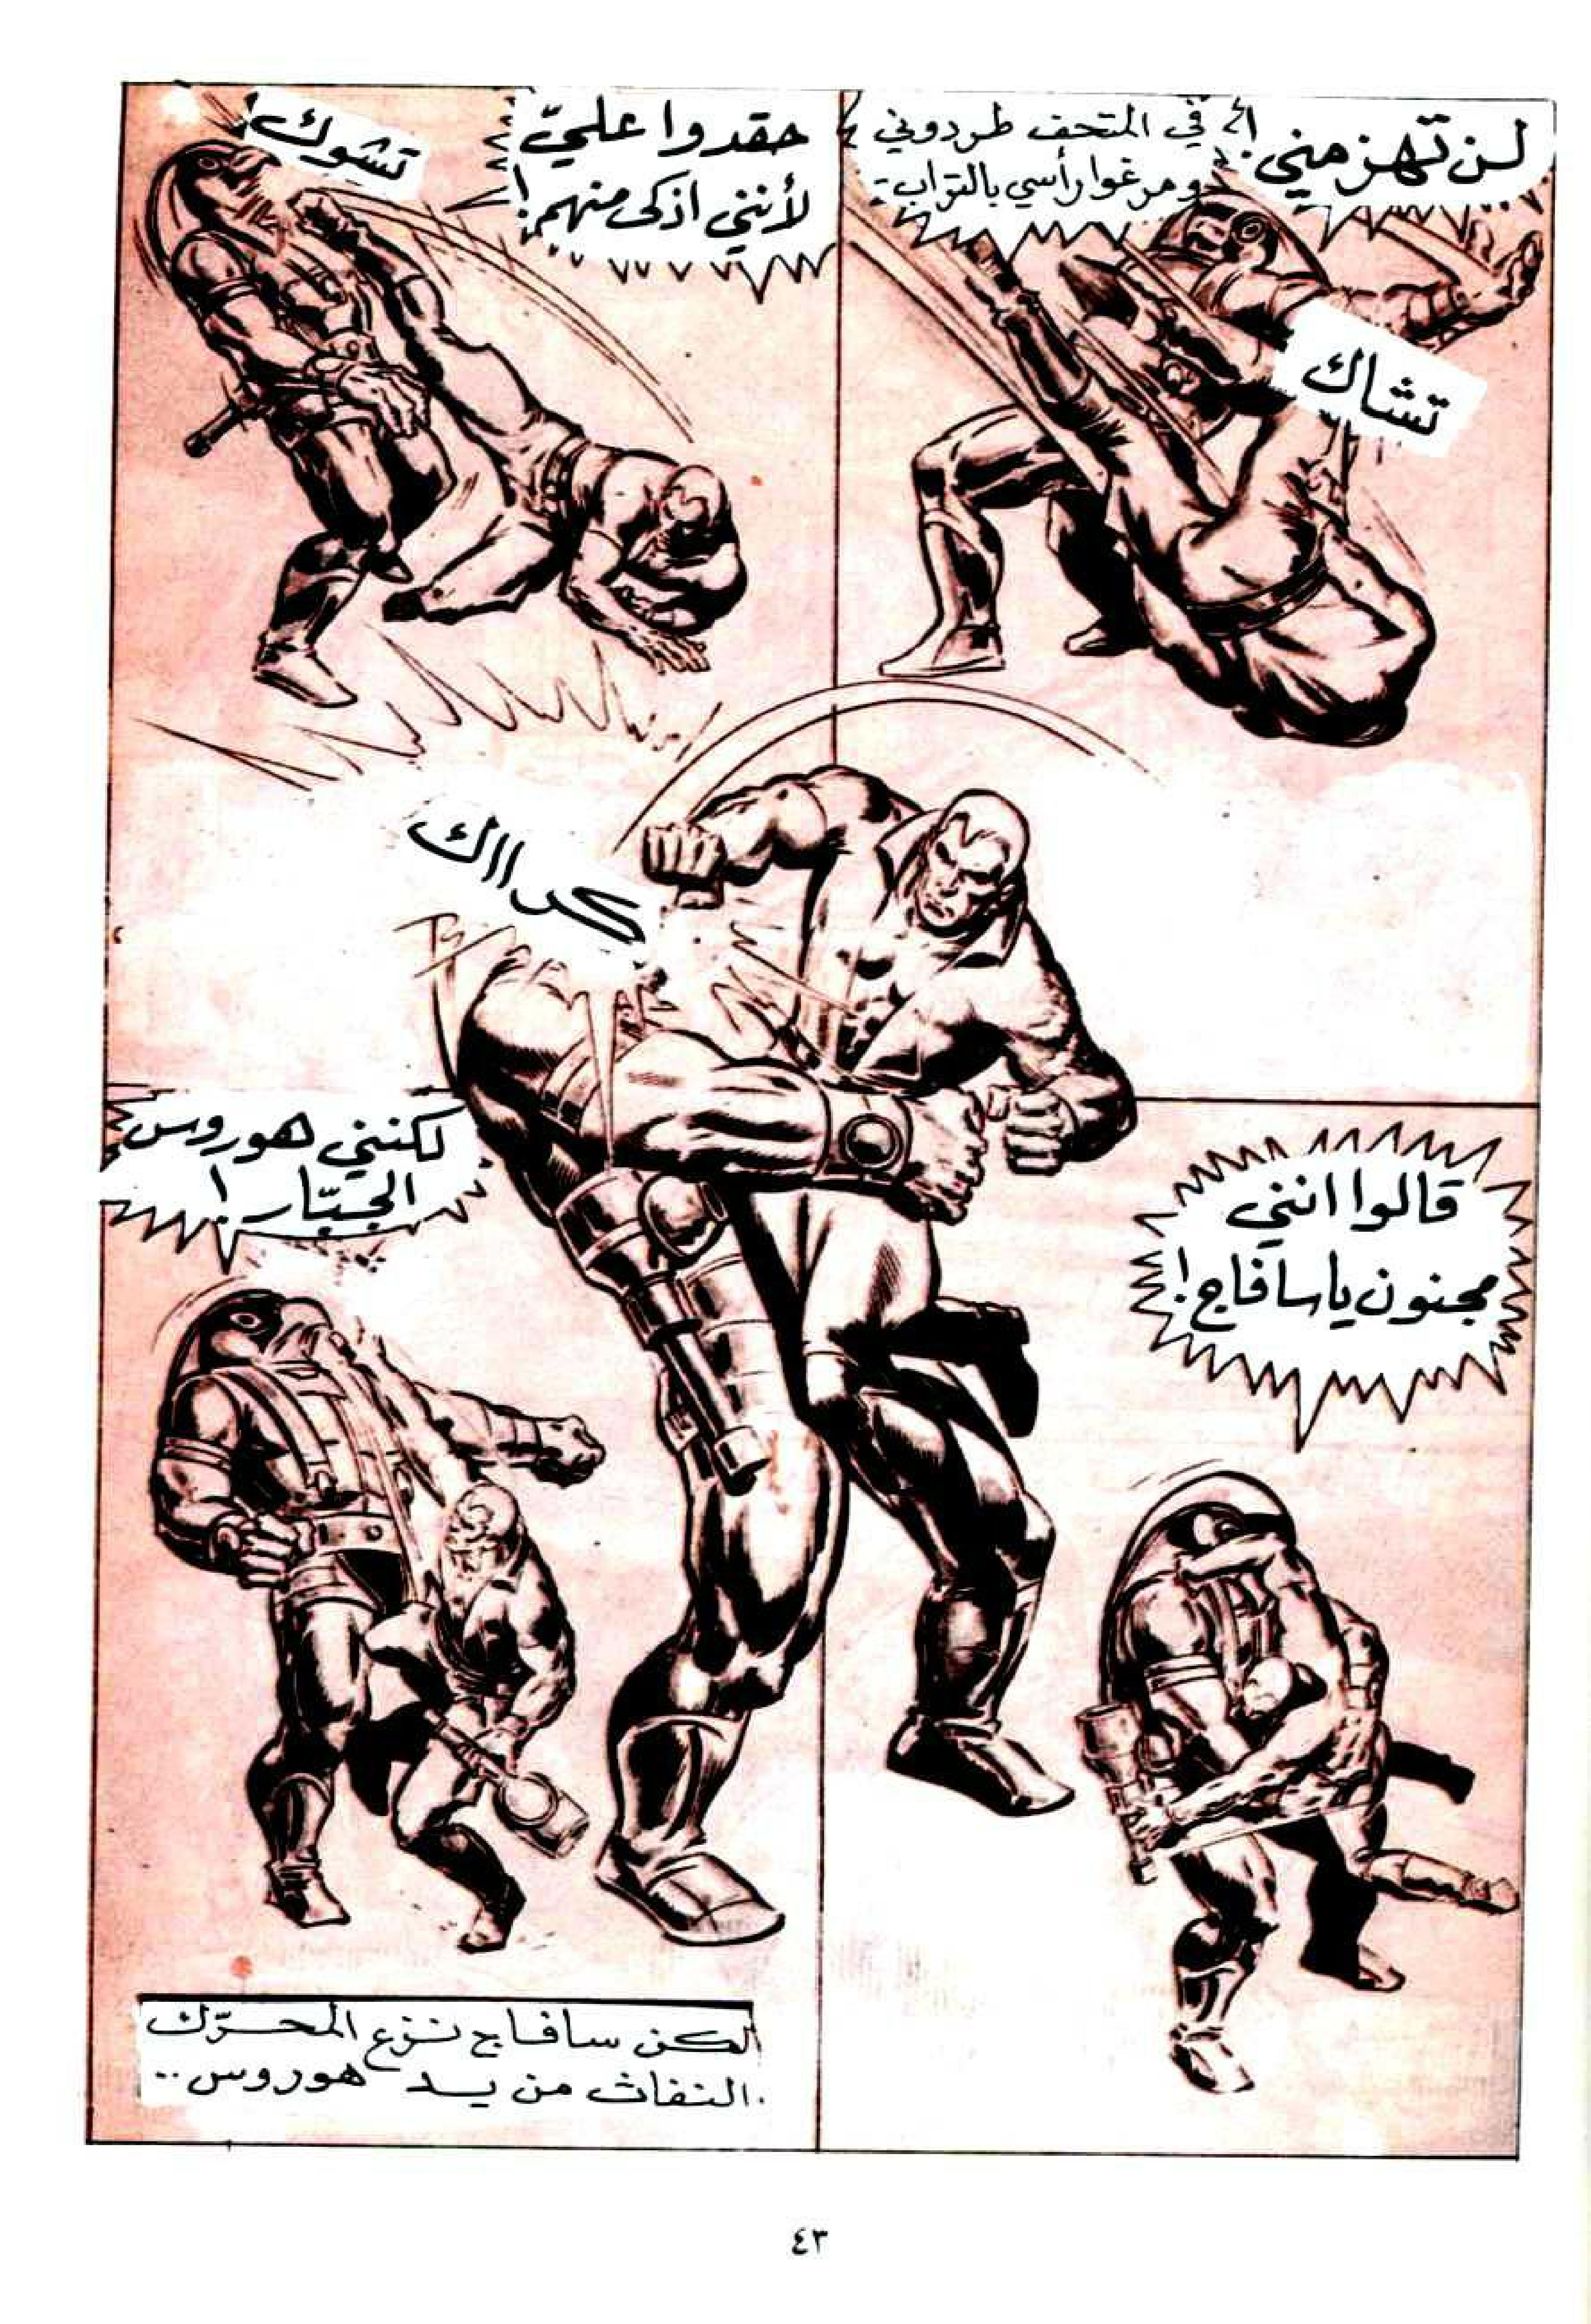 لن تهزمني!
في المتحف طردوني
ومرغوا رأسي بالتراب..
تشاك
حقدوا عليّ
لأنني اذكى منهم!
تشوك
كرااك
قالوا انني
مجنون يا سافاج!
لكنني هوروس
الجبّار!
لكن سافاج نزع المحرّك
النفاث من يد هوروس..
٤٣